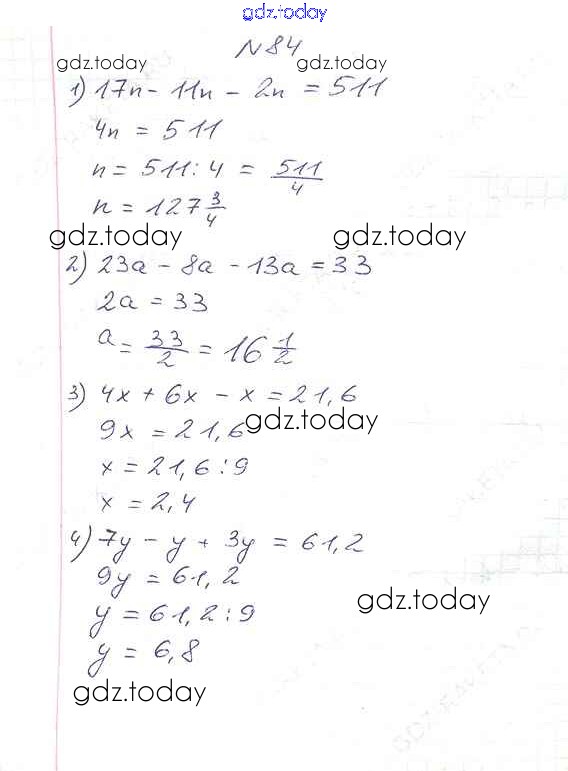 gdz.today
N 84
gdz.today gdz.today
1) 17n - 11n - 2n = 511
4n = 511
n = 511 : 4 = 511/4
n = 127 3/4
gdz.today gdz.today
2) 23a - 8a - 13a = 33
2a = 33
a = 33/2 = 16 1/2
3) 4x + 6x - x = 21,6
9x = 21,6
gdz.today
x = 21,6 : 9
x = 2,4
4) 7y - y + 3y = 61,2
9y = 61,2
gdz.today
y = 61,2 : 9
y = 6,8
gdz.today